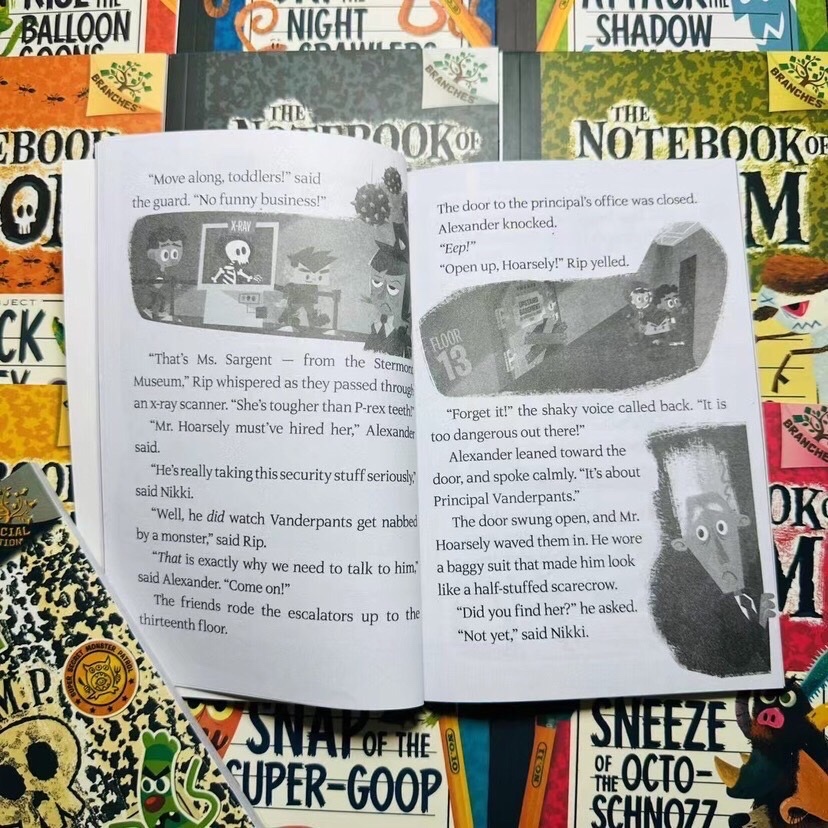 BALLOON
NIGHT
CRAWLERS
SHADOW
BRANCHES
BRANCHES
BRANCHES
THE
NOTEBOOK OF
THE
NOTEBOOK OF
M
"Move along, toddlers!" said
the guard. "No funny business!"
X-RAY
"That's Ms. Sargent — from the Stermont
Museum," Rip whispered as they passed through
an x-ray scanner. "She's tougher than P-rex teeth!"
"Mr. Hoarsely must've hired her," Alexander
said.
"He's really taking this security stuff seriously,"
said Nikki.
"Well, he did watch Vanderpants get nabbed
by a monster," said Rip.
"That is exactly why we need to talk to him,"
said Alexander. "Come on!"
The friends rode the escalators up to the
thirteenth floor.
The door to the principal's office was closed.
Alexander knocked.
"Eep!"
"Open up, Hoarsely!" Rip yelled.
FLOOR
13
"Forget it!" the shaky voice called back. "It is
too dangerous out there!"
Alexander leaned toward the
door, and spoke calmly. "It's about
Principal Vanderpants."
The door swung open, and Mr.
Hoarsely waved them in. He wore
a baggy suit that made him look
like a half-stuffed scarecrow.
"Did you find her?" he asked.
"Not yet," said Nikki.
BRANCHES
SUPER SECRET MONSTER PATROL
M.P.
SNAP OF THE
SUPER-GOOP
NO. 10
NO. 11
SNEEZE
OF THE OCTO-
SCHNOZZ